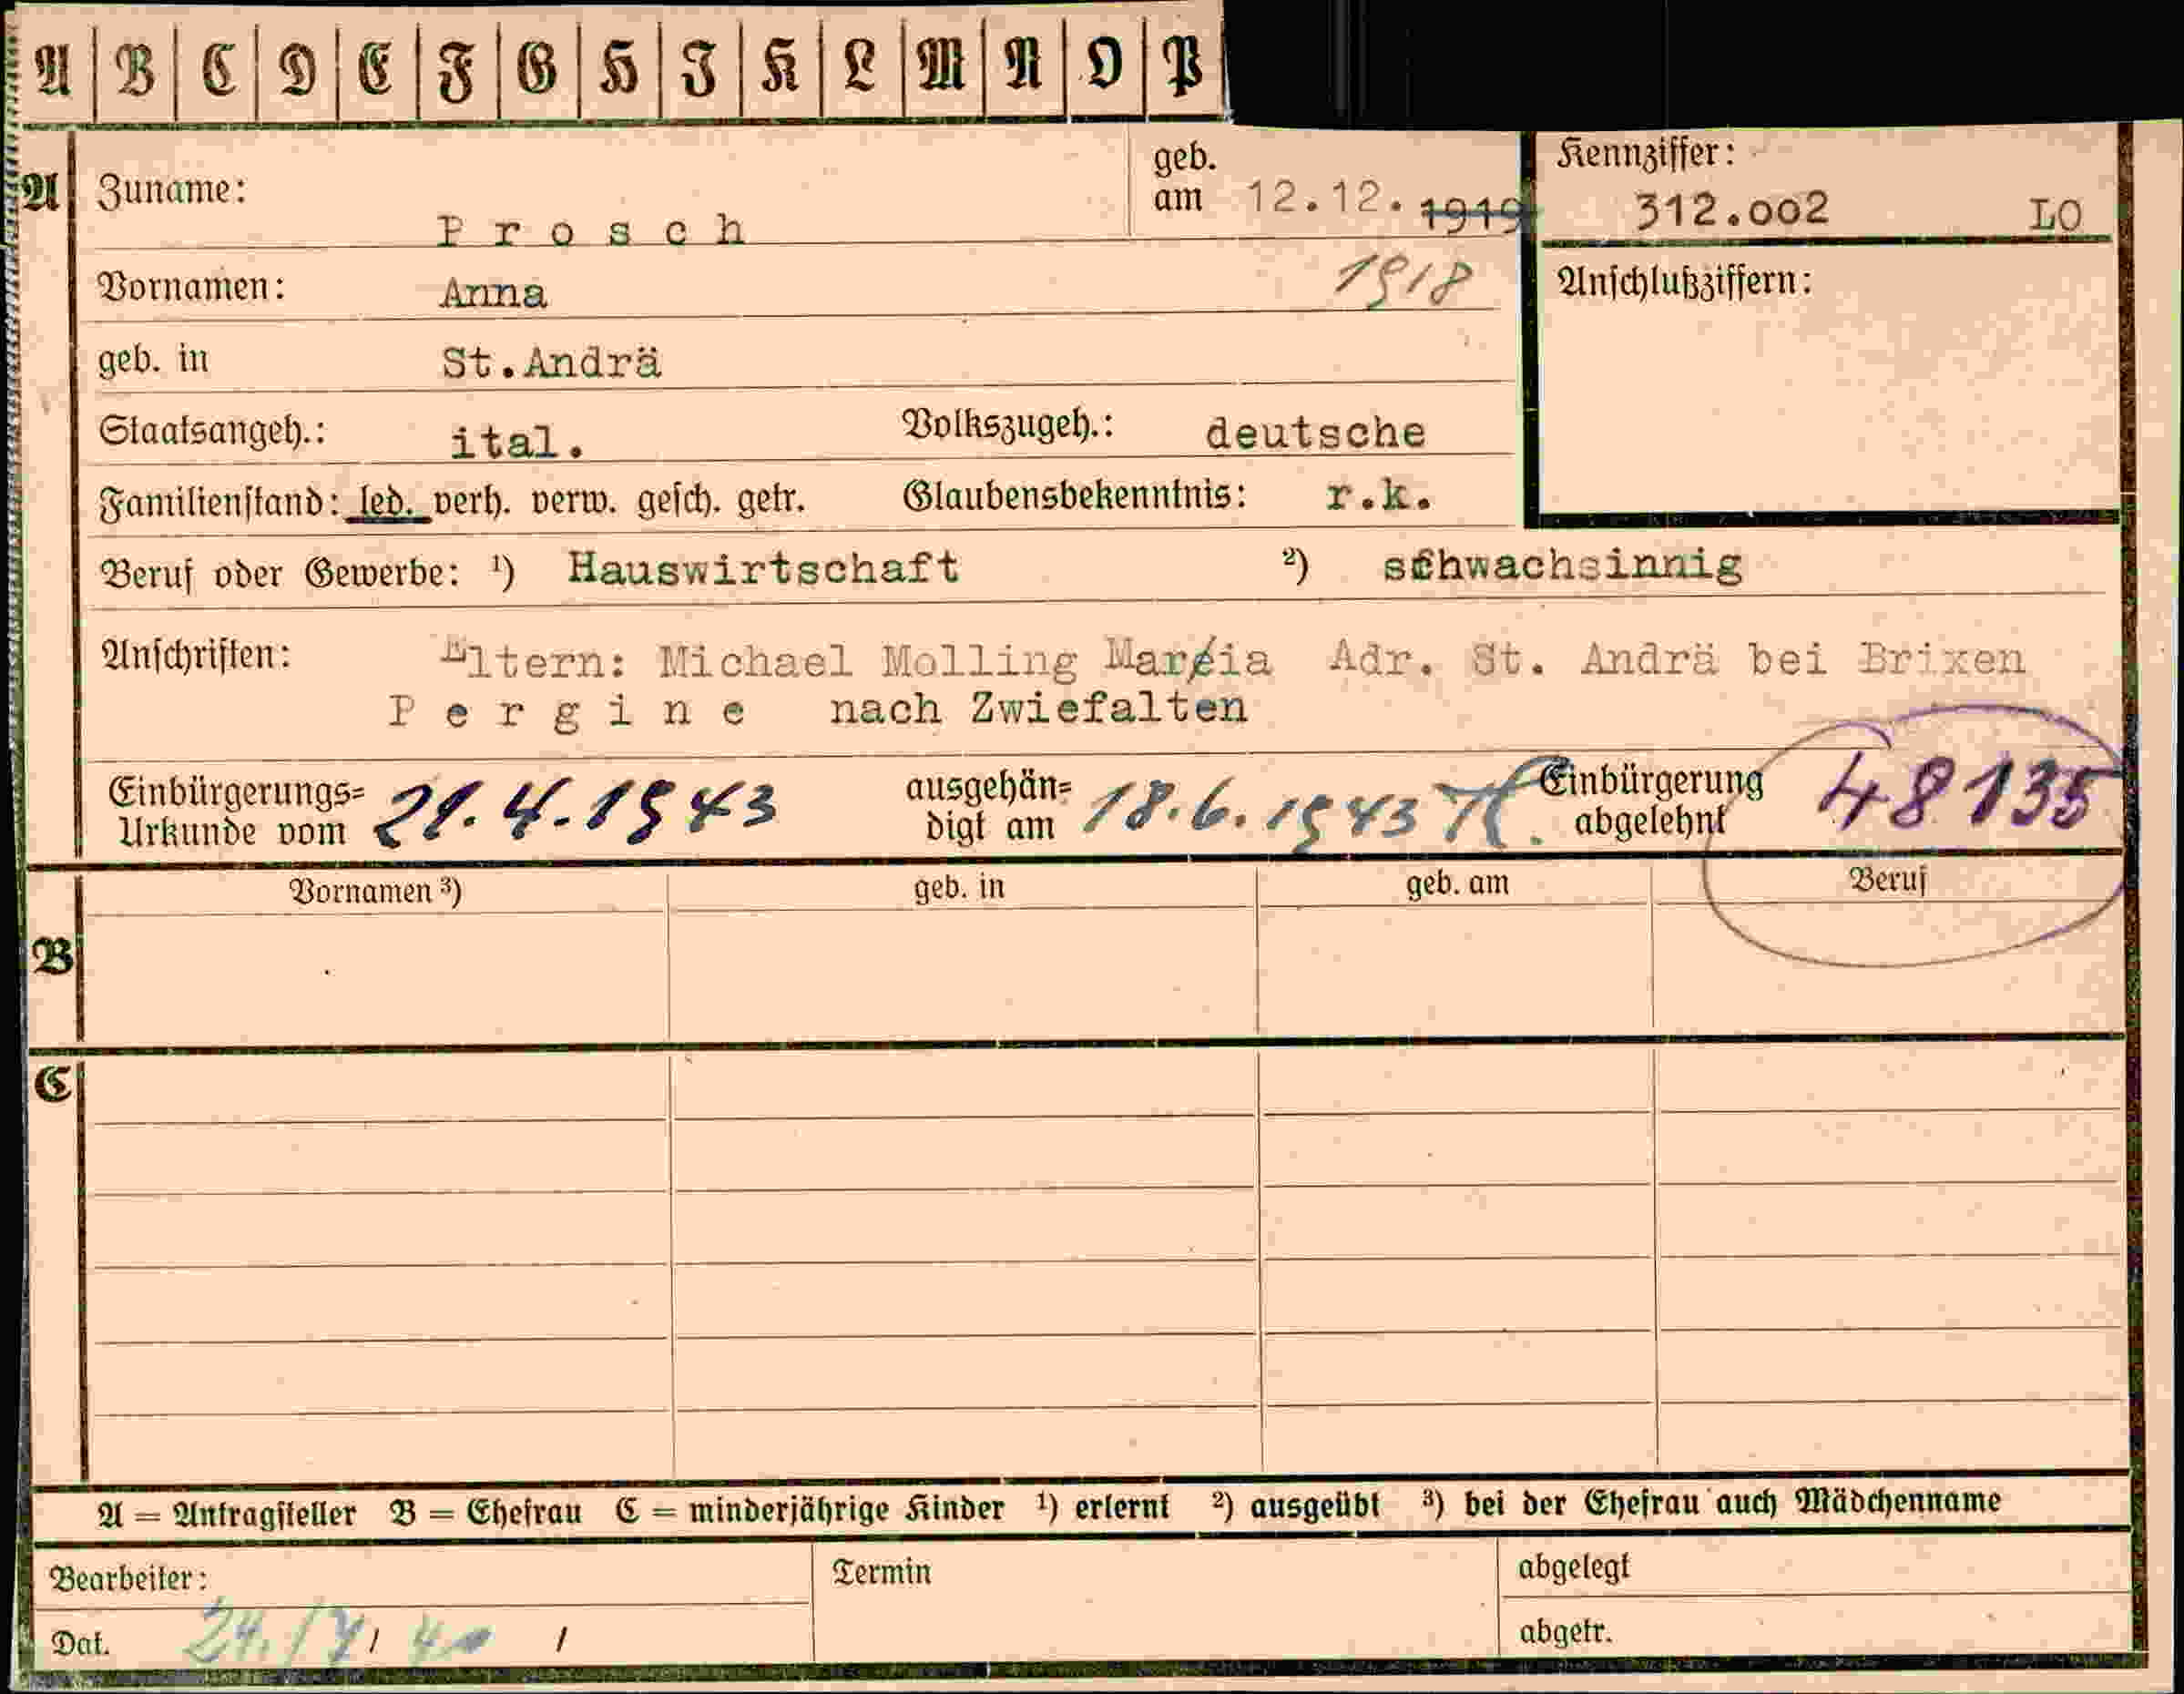 A B C D E F G H I K L M N O P
A Zuname: P r o s c h geb. am 12.12. 1919 Kennziffer: 312.002 LO
Vornamen: Anna 1918 Anschlußziffern:
geb. in St.Andrä
Staatsangeh.: ital. Volkszugeh.: deutsche
Familienstand: led. verh. verw. gesch. getr. Glaubensbekenntnis: r.k.
Beruf oder Gewerbe: ¹) Hauswirtschaft ²) schwachsinnig
Anschriften: Eltern: Michael Molling Maria Adr. St. Andrä bei Brixen
P e r g i n e nach Zwiefalten
Einbürgerungs= ausgehän= Einbürgerung 48135
Urkunde vom 21.4.1943 digt am 18.6.1943 abgelehnt
Vornamen ³) geb. in geb. am Beruf
B
C
A = Antragsteller B = Ehefrau C = minderjährige Kinder ¹) erlernt ²) ausgeübt ³) bei der Ehefrau auch Mädchenname
Bearbeiter: Termin abgelegt
Dat. abgetr.